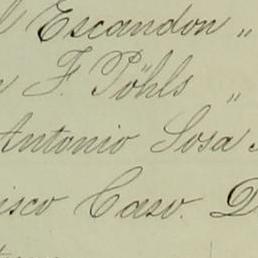 l Escandon "
F. Pöhls "
Antonio Sosa
isco Caso. D